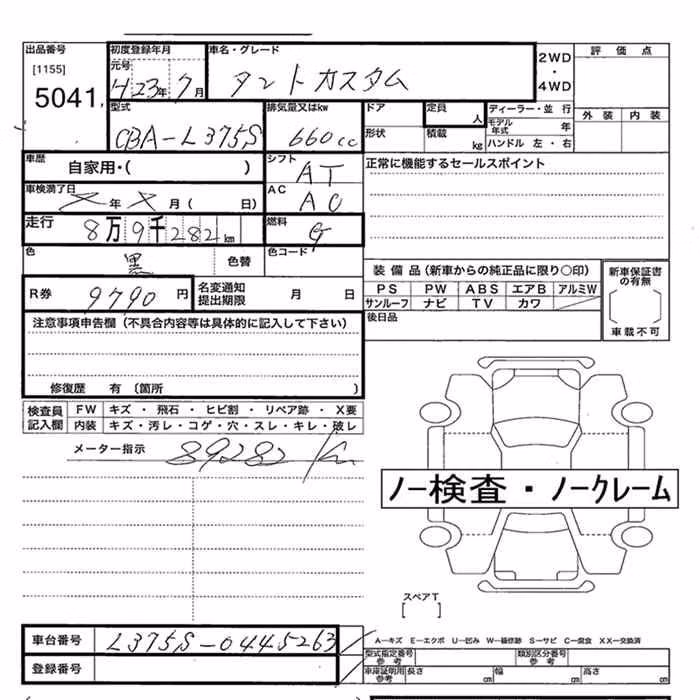 出品番号
[1155]
5041
初度登録年月
元号
H23年7月
車名・グレード
タントカスタム
2WD
・
4WD
評価点
外装 内装
型式
CBA-L375S
排気量又はkw
660cc
ドア
形状
定員
人
積載
kg
ディーラー・並行
モデル年式 年
ハンドル 左・右
車歴
自家用・( )
シフト
AT
正常に機能するセールスポイント
車検満了日
メ年メ月( 日)
AC
AC
走行
8万9千282km
燃料
G
色
黒
色替
色コード
装備品(新車からの純正品に限り○印)
PS PW ABS エアB アルミW
サンルーフ ナビ TV カワ
新車保証書の有無
[ ]
車載不可
R券
9790円
名変通知
提出期限
月 日
後日品
注意事項申告欄(不具合内容等は具体的に記入して下さい)
修復歴 有 (箇所 )
検査員記入欄
FW キズ ・ 飛石 ・ ヒビ割 ・ リペア跡 ・ X要
内装 キズ・汚レ・コゲ・穴・スレ・キレ・破レ
メーター指示 89282 Km
ノー検査・ノークレーム
スペアT
[ ]
車台番号
L375S-0445263
登録番号
A―キズ E―エクボ U―凹み W―補修跡 S―サビ C―腐食 XX―交換済
型式指定番号
参考
類別区分番号
参考
車庫証明用
参考
長さ cm 幅 cm 高さ cm